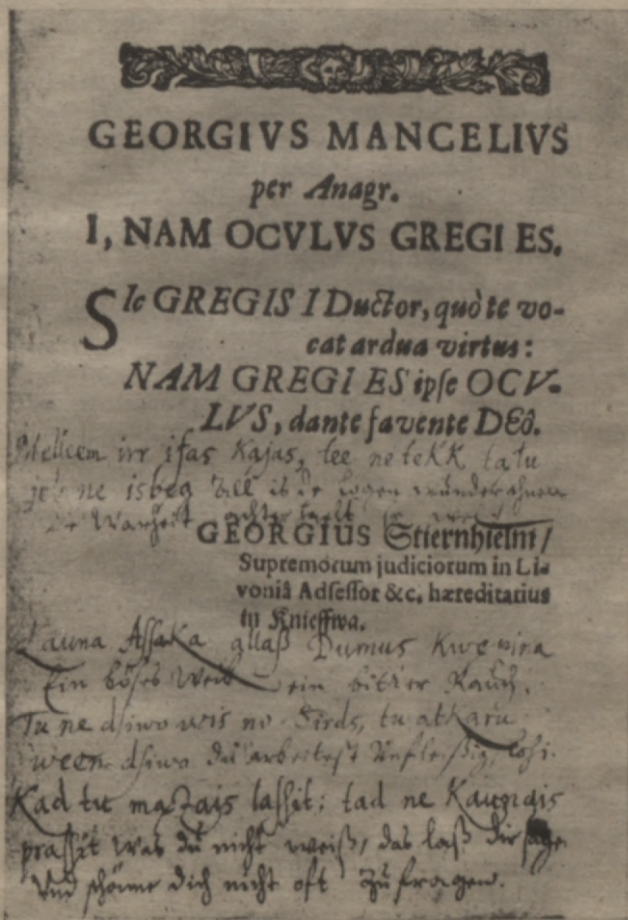 GEORGIVS MANCELIVS
per Anagr.
I, NAM OCVLVS GREGI ES.
SIc GREGIS I Ductor, quò te vo-
cat ardua virtus:
NAM GREGI ES ipſe OCV-
LVS, dante favente DEô.
irr iſas Kajas, tee ne tekk talu
ne isbeg
De Warheit
GEORGIUS Stiernhielm/
Supremorum judiciorum in Li-
voniâ Adſeſſor &c. hæreditarius
in Knieſſwa.
Launa Aſſaka Dumus
Ein böſes Weib ein bitter Rauch.
Tu ne dſiwo wis no Sirds, tu atkaru
ween dſiwo du arbeiteſt
Kad tu maſais laſſit; tad ne Kaunigis
praſſit was du nicht weiß, das laß dir ſage
Und ſchäme dich nicht oft zu fragen.